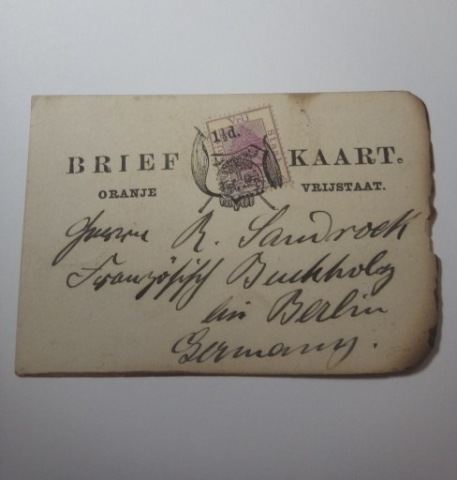 Vrij
1½d.
BRIEF KAART.
ORANJE VRIJSTAAT.
Herrn R. Sandrock
Französisch Buchholz
bei Berlin
Germany.